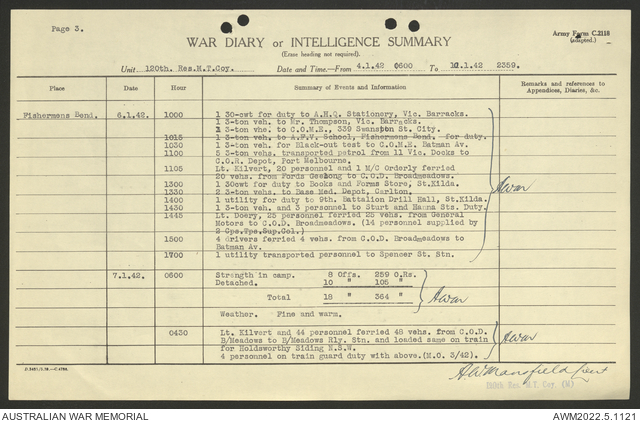 Page 3.
Army Form C.2118
(adapted.)
WAR DIARY or INTELLIGENCE SUMMARY
(Erase heading not required).
Unit 120th. Res.M.T.Coy. Date and Time—From 4.1.42 0600 To 11.1.42 2359.
Place Date Hour Summary of Events and Information Remarks and references to Appendices, Diaries, &c.
Fishermens Bend. 6.1.42 1000 1 30-cwt for duty to A.H.Q. Stationery, Vic. Barracks.
1 3-ton veh. to Mr. Thompson, Vic. Barracks.
1 3-ton vhe. to C.O.M.E., 339 Swanston St. City.
1015 1 3-ton veh. to A.F.V. School, Fishermens Bend. for duty.
1030 1 3-ton veh. for Black-out test to C.O.M.E. Batman Av.
1100 6 3-ton vehs. transported petrol from 11 Vic. Docks to
C.O.R. Depot, Port Melbourne.
1105 Lt. Kilvert, 20 personnel and 1 M/C Orderly ferried
20 vehs. from Fords Geelong to C.O.D. Broadmeadows.
1300 1 30cwt for duty to Books and Forms Store, St.Kilda.
1330 2 3-ton vehs. to Base Med. Depot, Carlton.
1400 1 utility for duty to 9th. Battalion Drill Hall, St.Kilda.
1430 1 3-ton veh. and 3 personnel to Sturt and Hanna Sts. Duty.
1445 Lt. Doery, 25 personnel ferried 25 vehs. from General
Motors to C.O.D. Broadmeadows. (14 personnel supplied by
2 Cps.Tps.Sup.Col.)
1500 4 drivers ferried 4 vehs. from C.O.D. Broadmeadows to
Batman Av.
1700 1 utility transported personnel to Spencer St. Stn.
7.1.42. 0600 Strength in camp. 8 Offs. 259 O.Rs.
Detached. 10 " 105 "
Total 18 " 364 "
Weather. Fine and warm.
0430 Lt. Kilvert and 44 personnel ferried 48 vehs. from C.O.D.
B/Meadows to B/Meadows Rly. Stn. and loaded same on train
for Holdsworthy Siding N.S.W.
4 personnel on train guard duty with above.(M.O. 3/42).
Mansfield Lieut
Res M.T. Coy.
AUSTRALIAN WAR MEMORIAL
AWM2022.5.1121